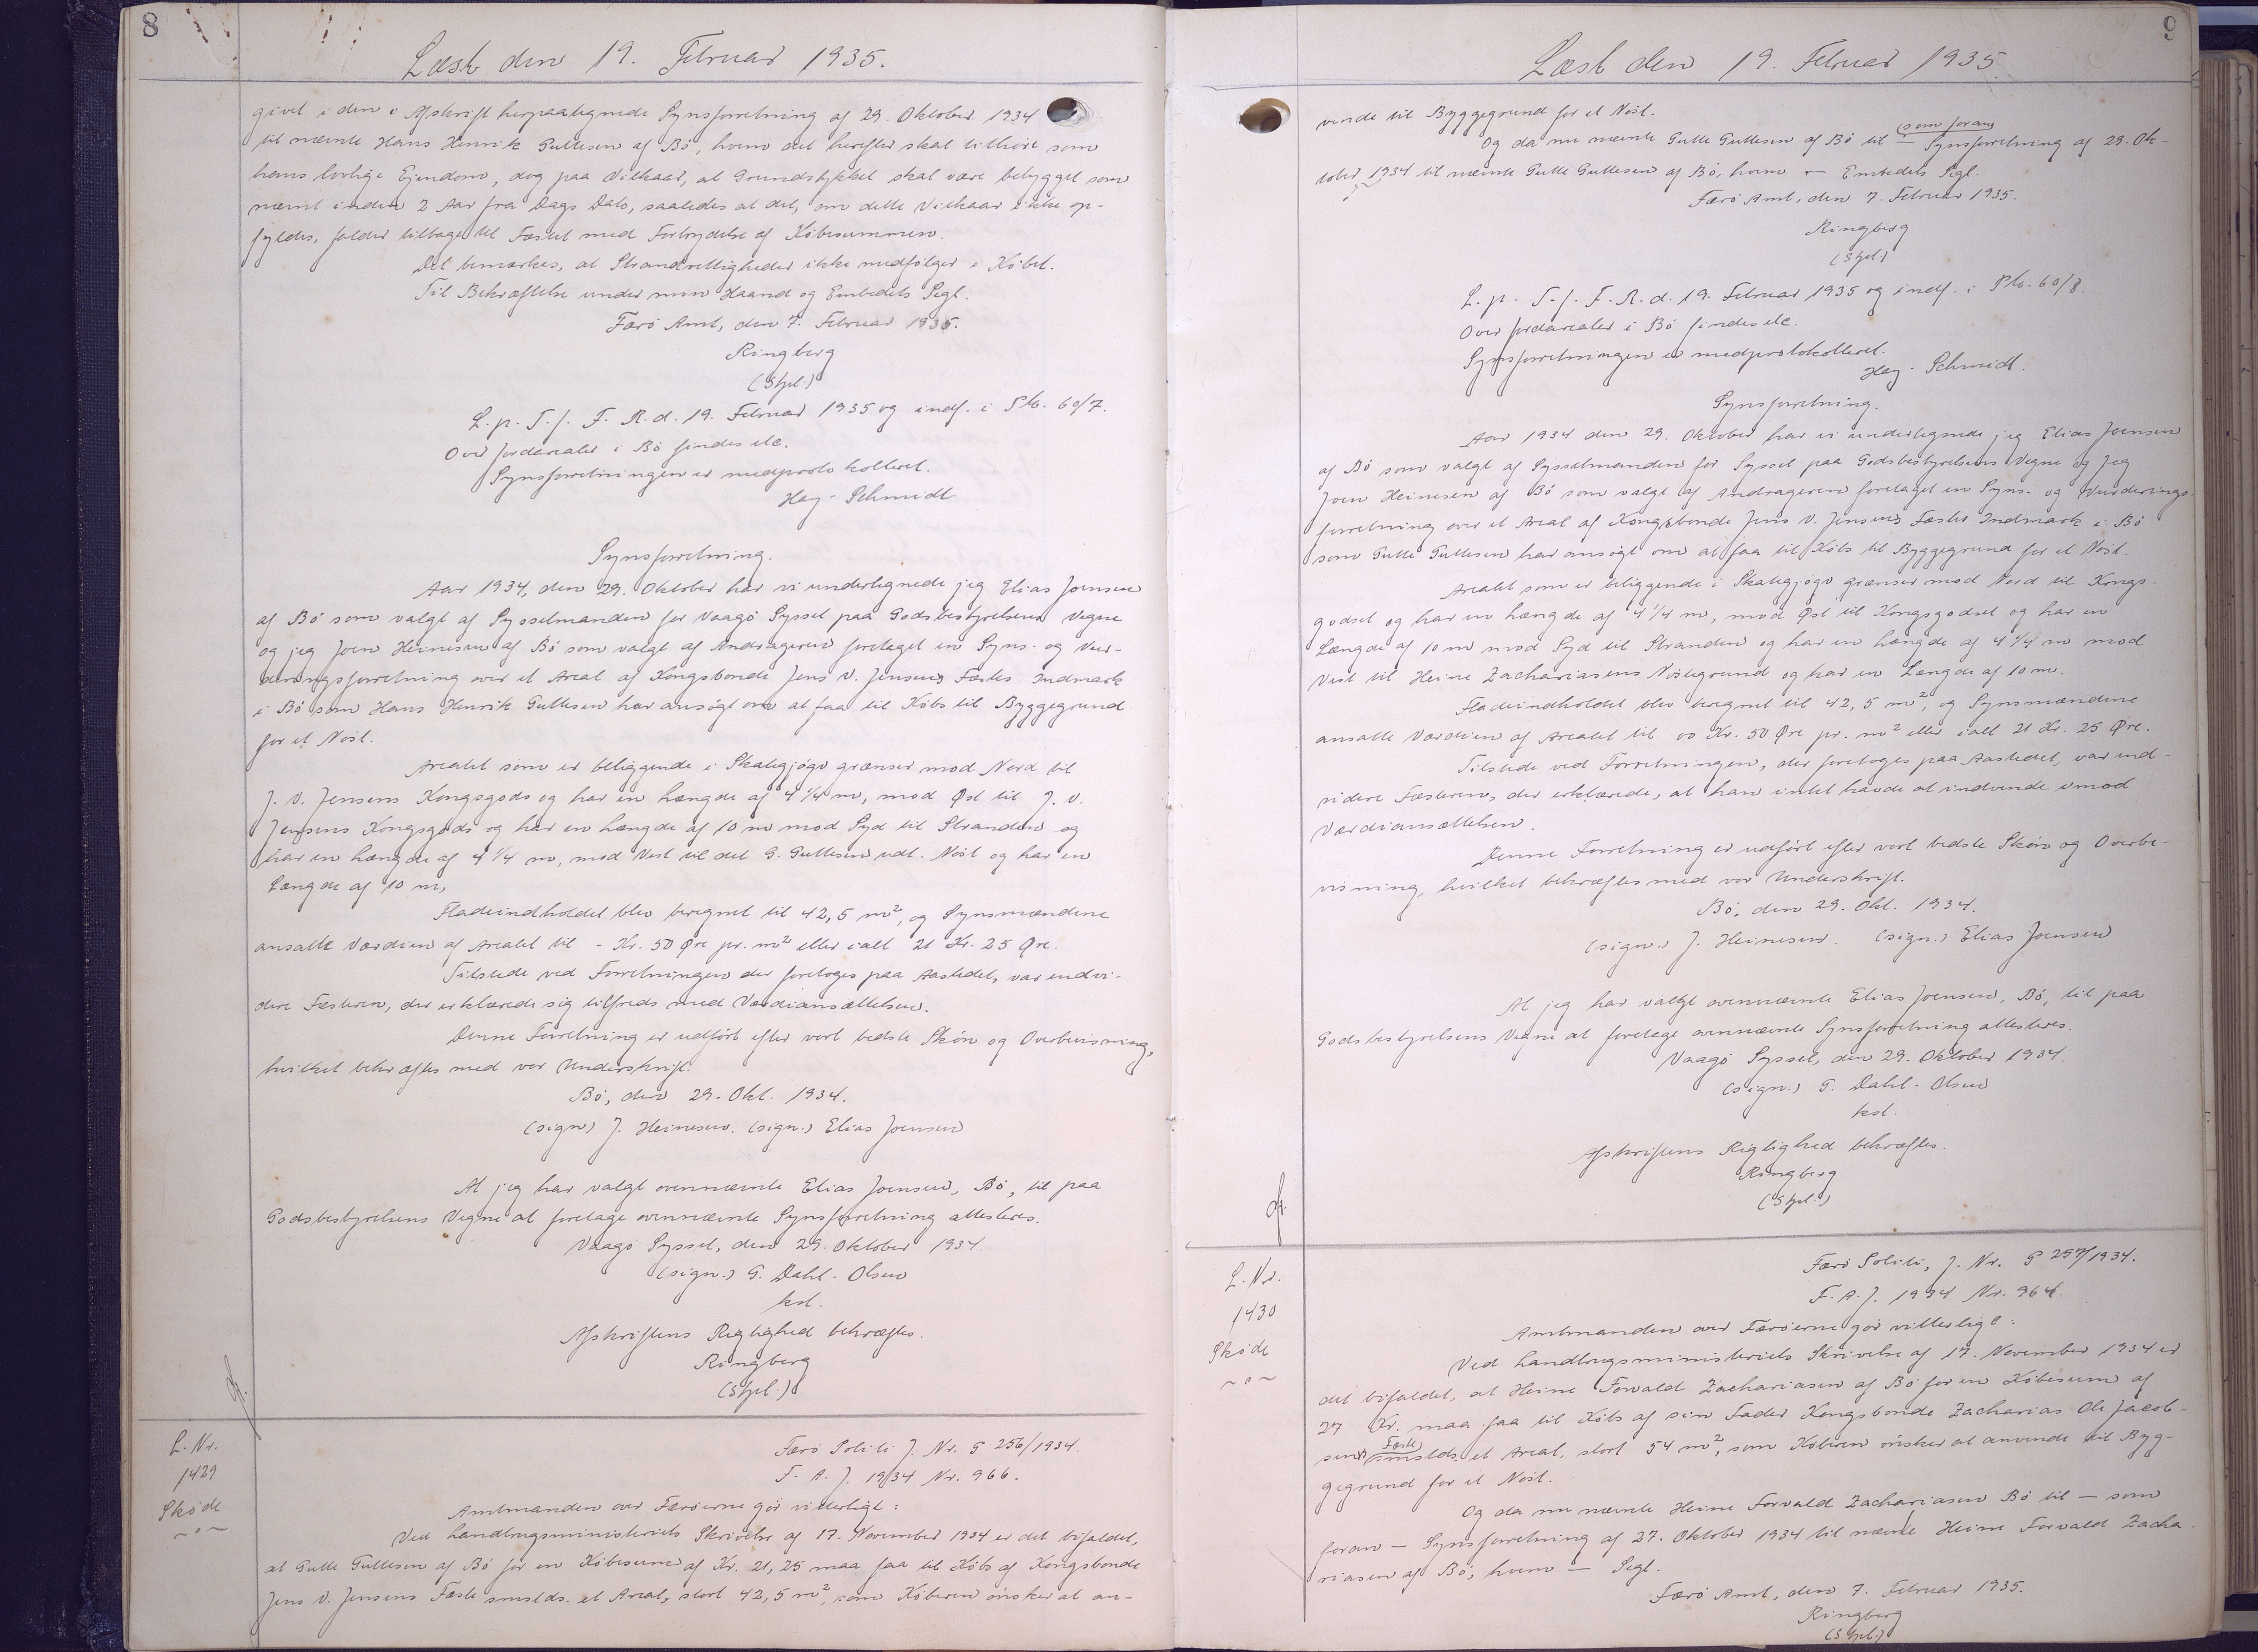 8
Læst den 19. Februar 1935.
givet i den i Afskrift herpaategnede Synsforretning af 29. Oktober 1934
til nævnte Hans Henrik Guttesen af Bö, hvem det herefter skal tilhöre som
hans lovlige Ejendom, dog paa Vilkaar, at Grundstykket skal være bebygget som
nævnt inden 2 Aar fra Dags Dato, saaledes at det, om dette Vilkaar ikke op-
fyldes, falder tilbage til Fæstet med Fortrydelse af Köbesummen.
Det bemærkes, at Strandrettigheder ikke medfölger i Köbet.
Til Bekræftelse under min Haand og Embedets Segl.
Færö Amt, den 7. Februar 1935.
Ringberg
(Stpl.)
L. p. T. f. F. R. d. 19. Februar 1935 og indf. i Ptk. 60/7.
Over Jordarealer i Bö findes etc.
Synsforretningen er medprotokolleret.
Hay-Schmidt
Synsforretning.
Aar 1934, den 29. Oktober har vi undertegnede jeg Elias Joensen
af Bö som valgt af Sysselmanden for Vaagö Syssel paa Godsbestyrelsens Vegne
og jeg Joen Heinesen af Bö som valgt af Andrageren foretaget en Syns- og Vur-
deringsforretning over et Areal af Kongsbonde Jens V. Jensens Fæstes Indmark
i Bö som Hans Henrik Guttesen har ansögt om at faa til Köbs til Byggegrund
for et Nöst.
Arealet som er beliggende i Skategjógv grænser mod Nord til
J. V. Jensens Kongsgods og har en Længde af 4 1/4 m, mod Øst til J. V.
Jensens Kongsgods og har en Længde af 10 m mod Syd til Stranden og
har en Længde af 4 1/4 m, mod Vest til det G. Guttesen udl. Nöst og har en
Længde af 10 m,
Fladeindholdet blev beregnet til 42,5 m², og Synsmændene
ansatte Værdien af Arealet til - Kr. 50 Øre pr. m² eller ialt 21 Kr. 25 Øre.
Tilstede ved Forretningen der foretoges paa Aastedet, var endvi-
dere Fæsteren, der erklærede sig tilfreds med Værdiansættelsen.
Denne Forretning er udfört efter vort bedste Skön og Overbevisning,
hvilket bekræftes med vor Underskrift.
Bö, den 29. Okt. 1934.
(sign) J. Heinesen. (sign.) Elias Joensen
At jeg har valgt ovennævnte Elias Joensen, Bö, til paa
Godsbestyrelsens Vegne at foretage ovennævnte Synsforretning attesteres.
Vaagö Syssel, den 29. Oktober 1934.
(sign.) G. Dahl-Olsen
kst.
Afskriftens Rigtighed bekræftes.
Ringberg
(Stpl.)
L. Nr.
1429
Sköde
~o~
Færö Politi J. Nr. G 256/1934.
F. A. J. 1934 Nr. 966.
Amtmanden over Færöerne gör vitterligt:
Ved Landbrugsministeriets Skrivelse af 17. November 1934 er det bifaldet,
at Gutte Guttesen af Bö for en Köbesum af Kr. 21,25 maa faa til Köbs af Kongsbonde
Jens V. Jensens Fæste smstds. et Areal, stort 42,5 m², som Köberen önsker at an-
9
Læst den 19. Februar 1935.
vende til Byggegrund for et Nöst.
Og da nu nævnte Gutte Guttesen af Bö til — (som foran) Synsforretning af 29. Ok-
tober 1934 til nævnte Gutte Guttesen af Bö, hvem — Embedets Segl.
Færö Amt, den 7. Februar 1935.
Ringberg
(Stpl.)
L. p. T. f. F. R. d. 19. Februar 1935 og indf. i Ptk. 60/8.
Over Jordarealer i Bö findes etc.
Synsforretningen er medprotokolleret.
Hay-Schmidt.
Synsforretning.
Aar 1934 den 29. Oktober har vi undertegnede jeg Elias Joensen
af Bö som valgt af Sysselmanden for Syssel paa Godsbestyrelsens Vegne og jeg
Joen Heinesen af Bö som valgt af Andrageren foretaget en Syns- og Vurderings-
forretning over et Areal af Kongsbonde Jens V. Jensens Fæstes Indmark i Bö
som Gutte Guttesen har ansögt om at faa til Köbs til Byggegrund for et Nöst.
Arealet som er beliggende i Skategjógv grænser mod Nord til Kongs-
godset og har en Længde af 4 1/4 m, mod Øst til Kongsgodset og har en
Længde af 10 m mod Syd til Stranden og har en Længde af 4 1/4 m mod
Vest til Heine Zachariasens Nöstegrund og har en Længde af 10 m.
Fladeindholdet blev beregnet til 42,5 m², og Synsmændene
ansatte Værdien af Arealet til oo Kr. 50 Øre pr. m² eller ialt 21 Kr. 25 Øre.
Tilstede ved Forretningen, der foretoges paa Aastedet, var end-
videre Fæsteren, der erklærede, at han intet havde at indvende imod
Værdiansættelsen.
Denne Forretning er udfört efter vort bedste Skön og Overbe-
visning, hvilket bekræftes med vor Underskrift.
Bö, den 29. Okt. 1934.
(sign.) J. Heinesen. (sign.) Elias Joensen
At jeg har valgt ovennævnte Elias Joensen, Bö, til paa
Godsbestyrelsens Vegne at foretage ovennævnte Synsforretning attesteres.
Vaagö Syssel, den 29. Oktober 1934.
(sign.) G. Dahl-Olsen
kst.
Afskriftens Rigtighed bekræftes.
Ringberg
(Stpl.)
L. Nr.
1430
Sköde
~o~
Færö Politi, J. Nr. G 257/1934.
F. A. J. 1934 Nr. 964.
Amtmanden over Færöerne gör vitterligt:
Ved Landbrugsministeriets Skrivelse af 17. November 1934 er
det bifaldet, at Heine Forvald Zachariasen af Bö for en Köbesum af
27 Kr. maa faa til Köbs af sin Fader Kongsbonde Zacharias Ole Jacob-
sens Fæste smstds. et Areal, stort 54 m², som Köberen önsker at anvende til Byg-
gegrund for et Nöst.
Og da nu nævnte Heine Forvald Zachariasen Bö til — som
foran — Synsforretning af 27. Oktober 1934 til nævnte Heine Forvald Zacha-
riasen af Bö, hvem — Segl.
Færö Amt, den 7. Februar 1935.
Ringberg
(Stpl.)